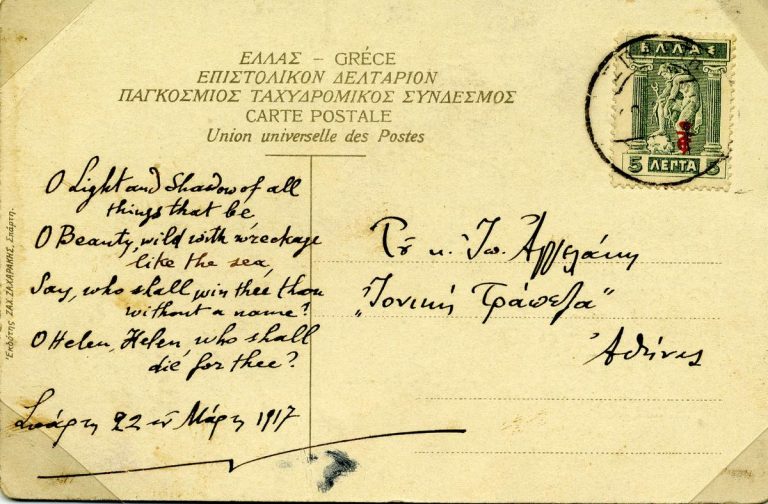 ΕΛΛΑΣ – GRÉCE
ΕΠΙΣΤΟΛΙΚΟΝ ΔΕΛΤΑΡΙΟΝ
ΠΑΓΚΟΣΜΙΟΣ ΤΑΧΥΔΡΟΜΙΚΟΣ ΣΥΝΔΕΣΜΟΣ
CARTE POSTALE
Union universelle des Postes
ΕΛΛΑΣ
5 ΛΕΠΤΑ 5
Ἐκδότης ΖΑΧ. ΖΑΧΑΡΑΚΗΣ, Σπάρτη.
O Light and Shadow of all
things that be
O Beauty, wild with wreckage
like the sea
Say, who shall win thee thou
without a name?
O Helen, Helen, who shall
die for thee?
Σπάρτη 22 Μάρτη 1917
κ. Ἰω. Ἀγγελάκη
"Ἰονική Τράπεζα"
Ἀθήνας